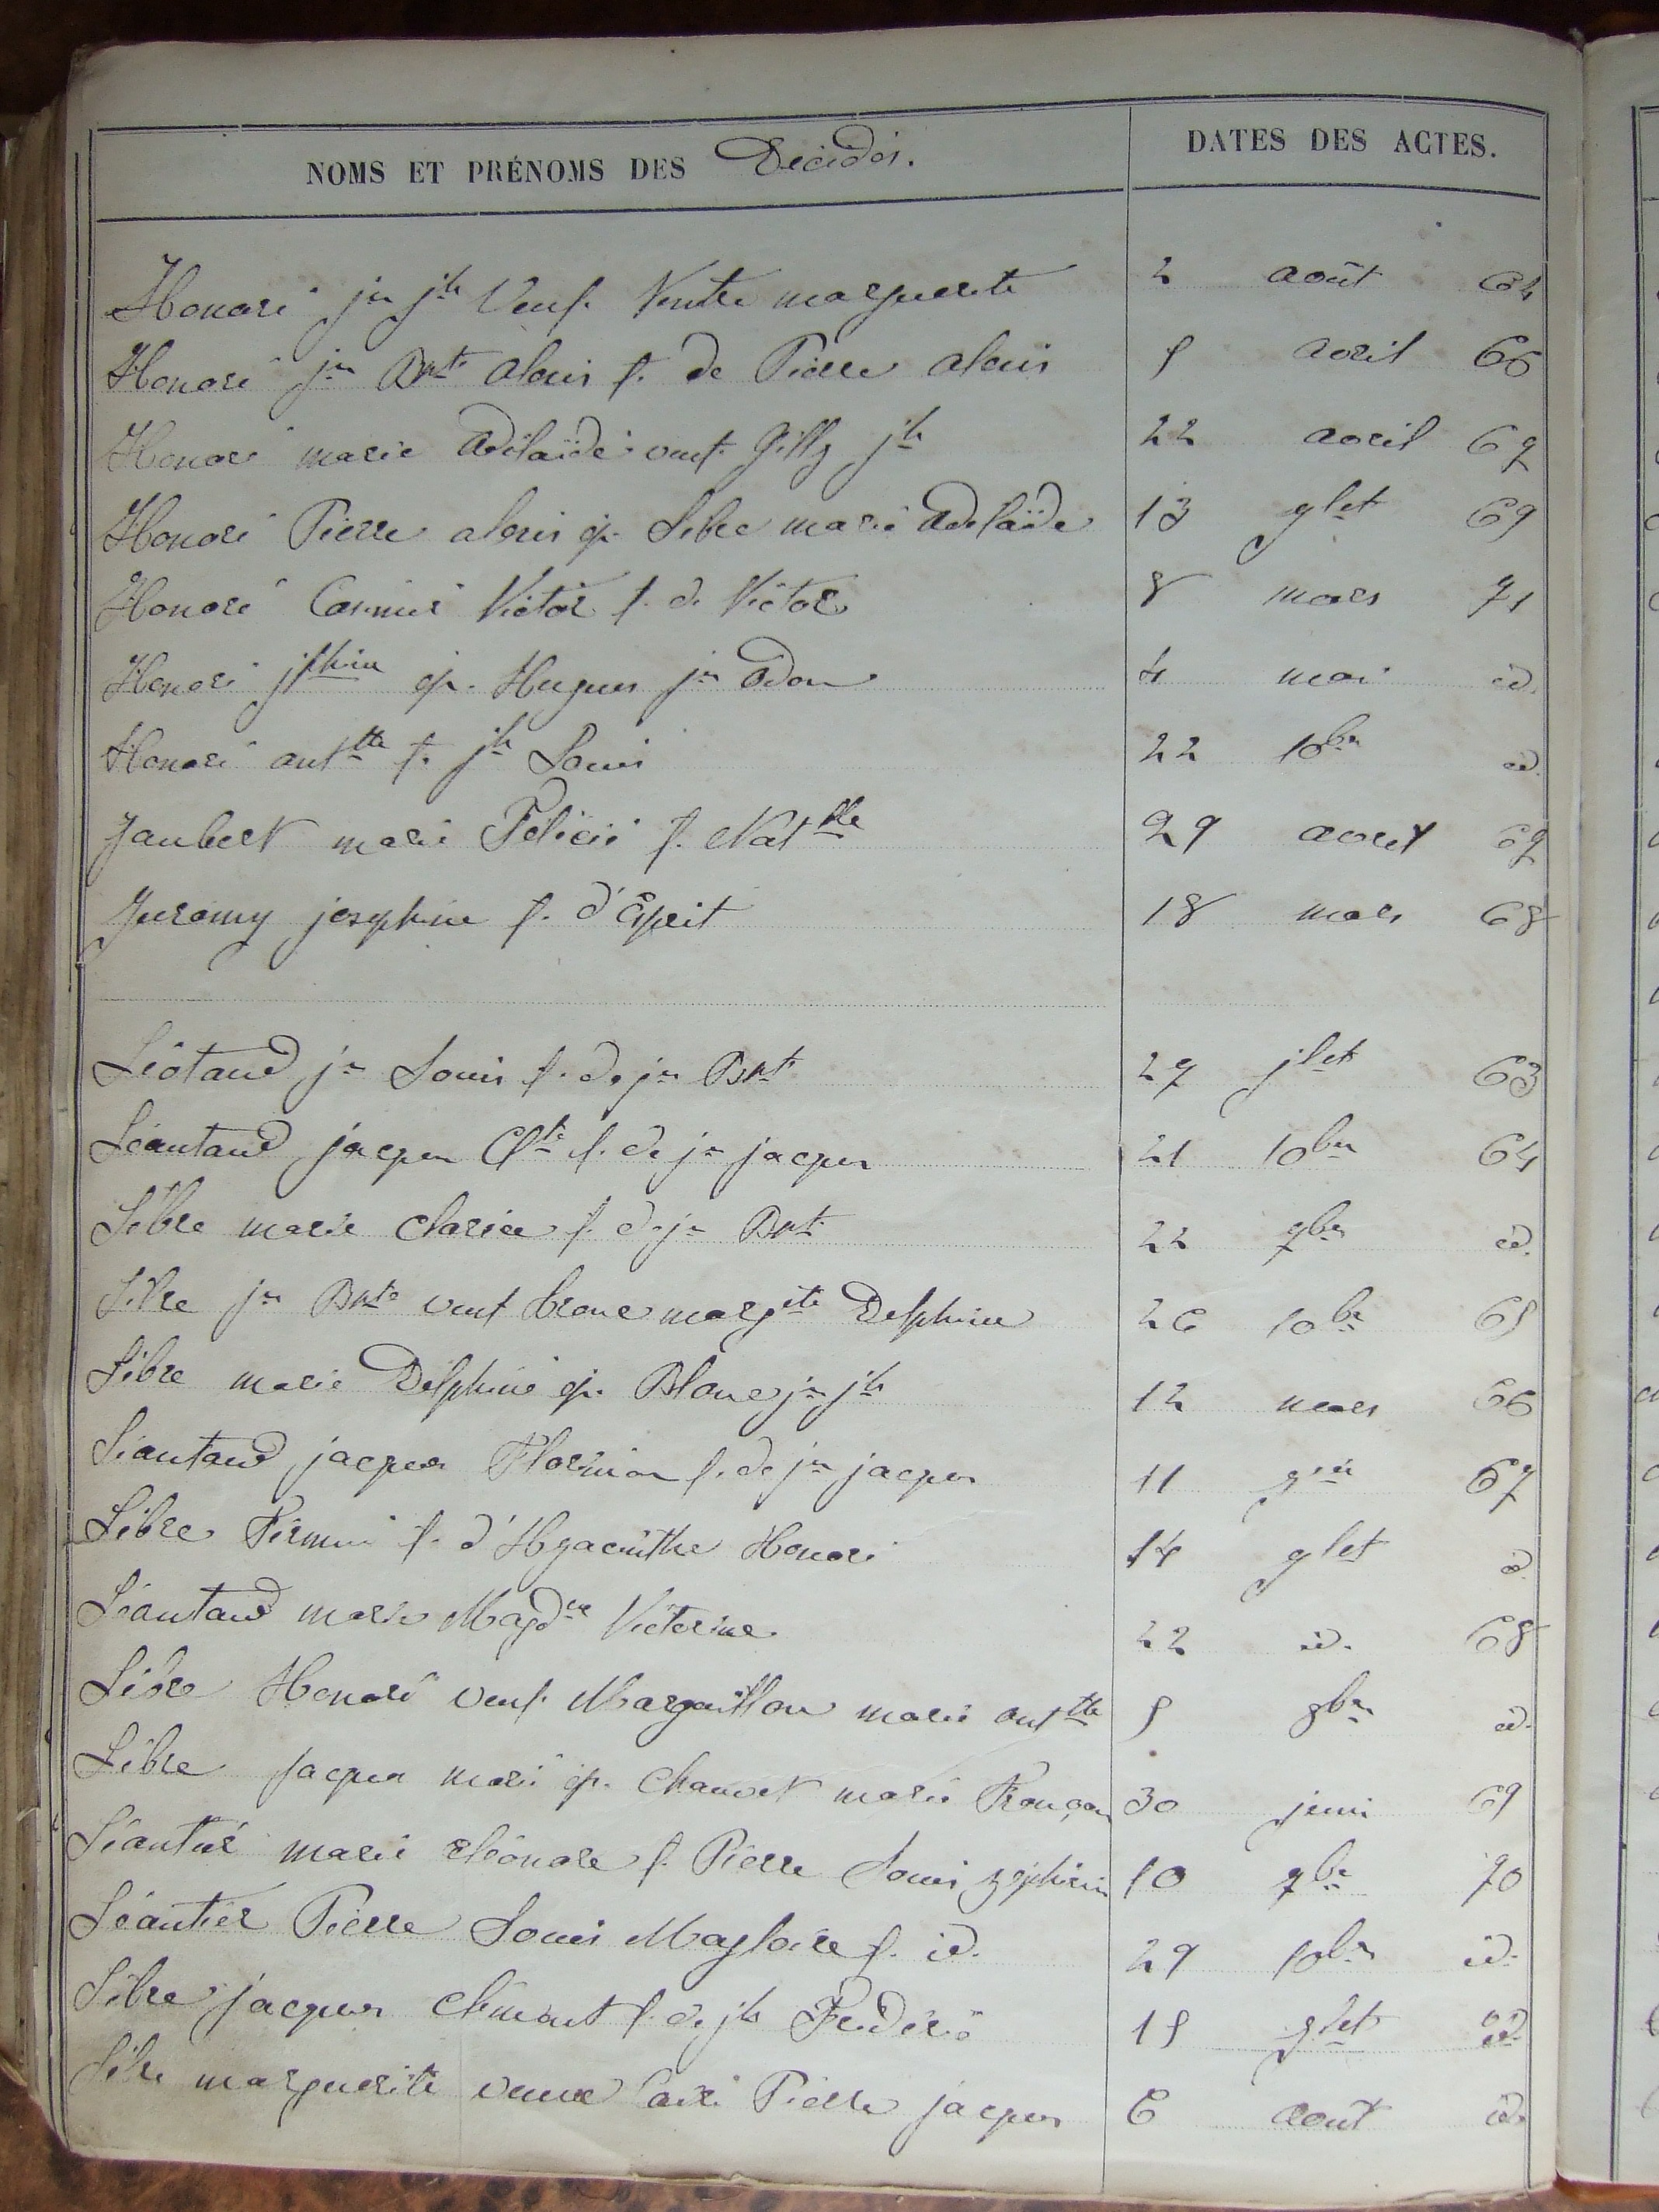 NOMS ET PRÉNOMS DES Décédés. DATES DES ACTES.
Honoré jn jh Veuf. Ventre marguerite 2 août 64
Honoré jn Bte alexis f. de Pierre alexis 5 avril 66
Honoré marie adélaïde veuf. Gilly jh 22 avril 67
Honoré Pierre alexis ép. Lèbre marie adelaïde 13 jlet 69
Honoré Casimir Victor f. de Victor 8 mars 71
Honoré jphine ép. Hugues jn Odon 4 mai id.
Honoré anttte f. jh Louis 22 10bre id.
Jaubert marie Félicie f. Natlle 29 avril 67
Juramy josephine f. d'Esprit 18 mars 68
Léotaud jn Louis f. de jn Bte 27 jlet 63
Léautaud jacques f. de jn jacques 21 10bre 64
Lèbre marie clarice f. de jn Bte 22 bre id.
Lèbre jn Bte veuf margite Delphine 26 10bre 65
Lèbre marie Delphine ép. Blanc jn jh 12 mars 66
Léautaud jacques Florimon f. de jn jacques 11 67
Lèbre Firmin f. d'Hyacinthe Honoré 14 jlet id
Léautaud marie Magdne Victorine 22 id. 68
Lèbre Honoré veuf. Margaillan marie anttte 5 8bre id.
Lèbre jacques marie ép. Chauvet marie Françon 30 juin 69
Léautier marie eléonore f. Pierre Louis zéphirin 10 bre 70
Léautier Pierre Louis Magloire f. id. 29 10bre id.
Lèbre jacques clément f. de jh Frédéric 15 jlet id.
Lèbre marguerite veuve Pierre jacques 6 aout id.